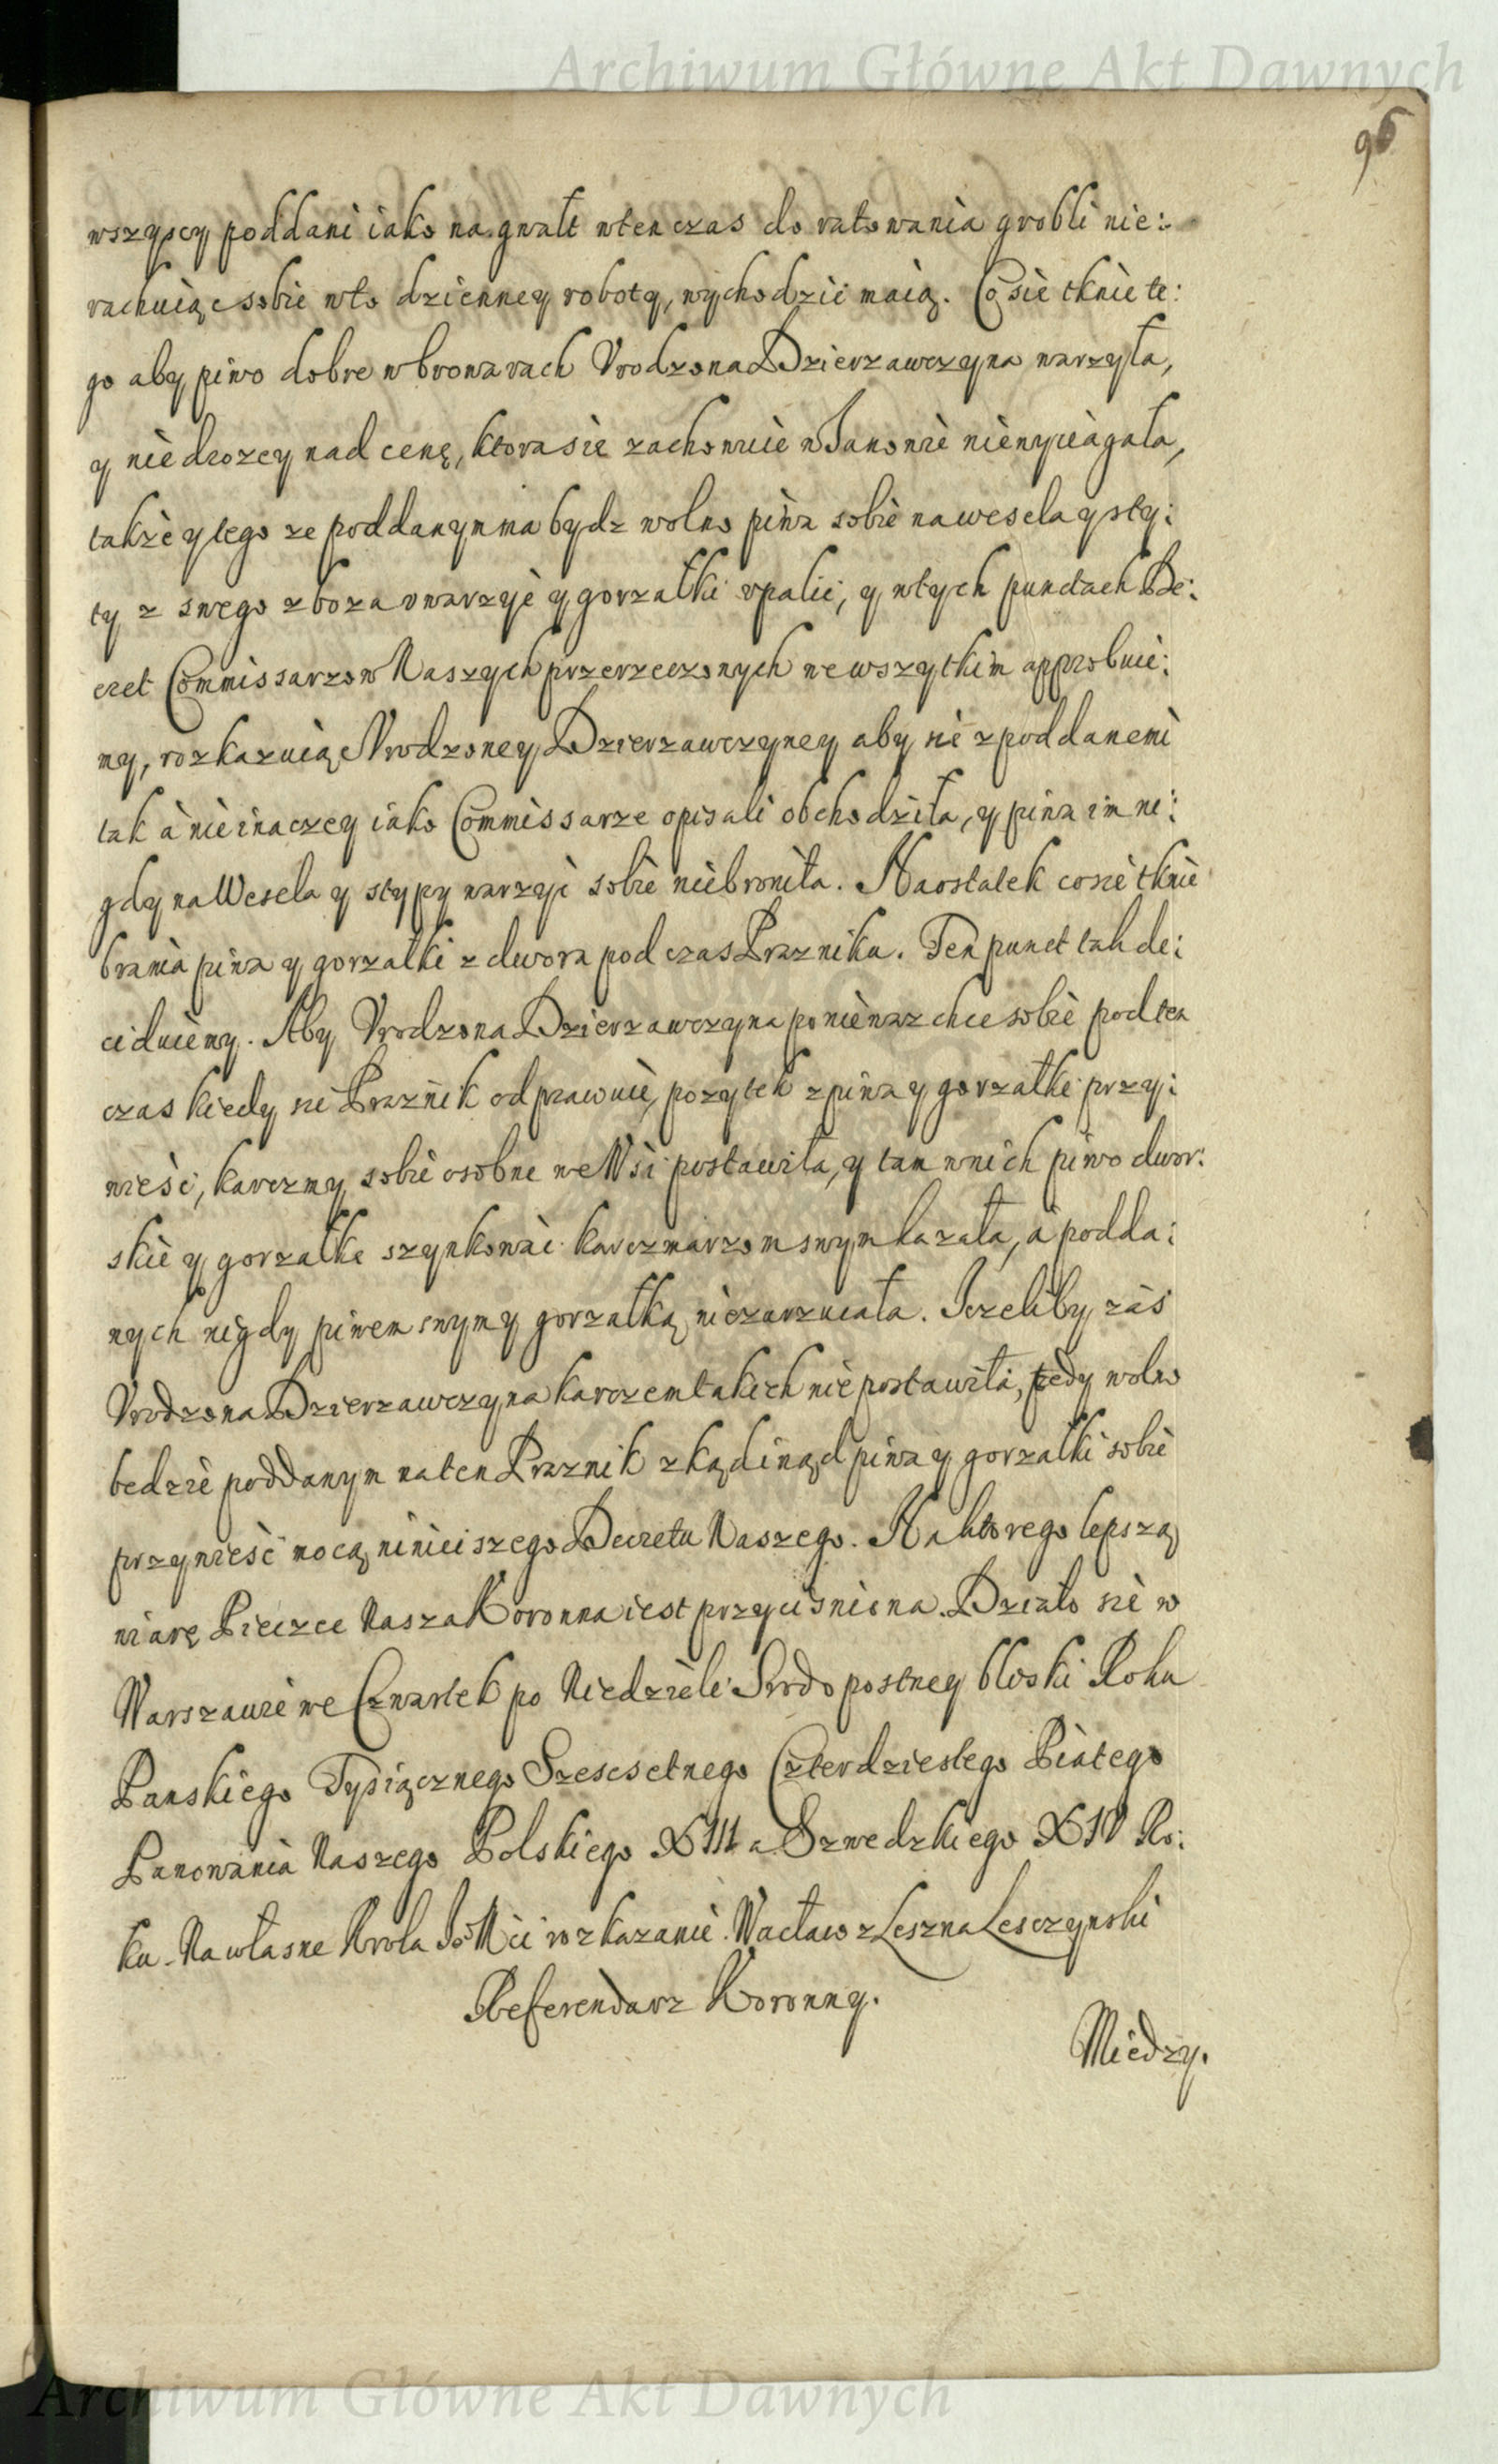 Archiwum Główne Akt Dawnych
96
wszyscy poddani iako na gwałt wten czas do ratowania grobli nie:
rachuiąc sobie wto dzienney roboty, wychodzić maią. Co się tknie te:
go aby piwo dobre w browarach Vrodzona Dzierzawczyna warzyła,
y nie drozey nad cenę, ktora sie zachowuie w Janowie niewyciągała,
także y tego ze poddanym ma bydz wolno piwa sobie na wesela y sty:
ty z swego zboza uwarzyć y gorzałki upalić, y wtych punctach De:
cret Commissarzow Naszych przerzeczonych we wszytkim approbuie:
my, rozkazuiąc Vrodzoney Dzierzawczyney aby sie z poddanemi
tak à nie inaczey iako Commissarze opisali obchodziła, y piwa im ni:
gdy na Wesela y stypy warzyć sobie niebroniła. Naostatek co sie tknie
brania piwa y gorzałki z dwora pod czas Praznika. Ten punct tak de:
ciduiemy. Aby Vrodzona Dzierzawczyna poniewaz chce sobie pod ten
czas kiedy sie Praznik odprawuie, pozytek z piwa y gorzałki przy:
nieść, karczmy sobie osobne we Wsi postawiła, y tam wnich piwo dwor:
skie y gorzałke szynkować karczmarzom swym kazała, à podda:
nych nigdy piwem swym y gorzałką niezarzucała. Jezeliby zaś
Vrodzona Dzierzawczyna karczem takich nie postawiła, tedy wolno
bedzie poddanym na ten Praznik zkądinąd piwa y gorzałki sobie
przynieść mocą ninieiszego Decretu Naszego. Na ktorego lepszą
wiarę Pieczęc Nasza Koronna iest przyciśniona. Działo sie w
Warszawie we Czwartek po Niedzieli Srodopostney bliski Roku
Panskiego Tysiącznego Szescsetnego Czterdziestego Piątego
Panowania Naszego Polskiego XIII a Szwedzkiego XIV Ro:
ku. Na własne Krola Jo Mci rozkazanie. Wacław z Leszna Lesczynski
Referendarz Koronny.
Miedzy.
Archiwum Główne Akt Dawnych